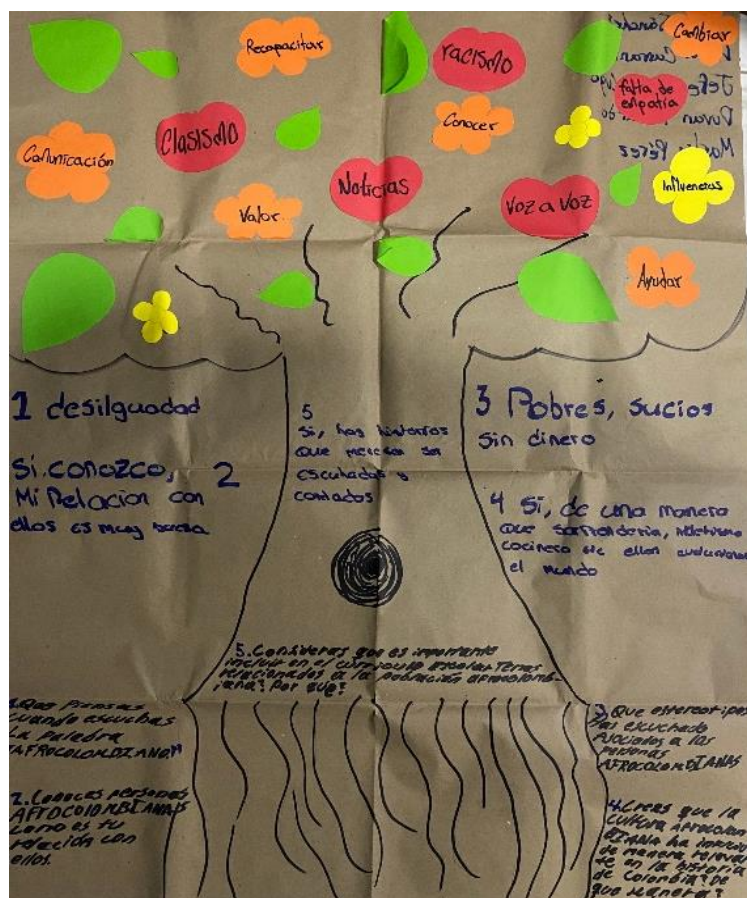 Cambiar
Recapacitar
racismo
falta de
empatía
Conocer
Clasismo
Comunicación
Noticias
Influencers
Valor
Voz a Voz
Ayudar
1 desilguadad
Si conozco, 2
Mi Relacion con
ellos es muy
5
Si, hay historias
que merecen ser
escuchadas y
contadas
3 Pobres, sucios
Sin dinero
4 Si, de una manera
que
cocinera de ellos
el mundo
5. Consideras que es importante
incluir en el curriculo escolar Temas
relacionados a la población afrocolomb-
iana? Por que?
1. Que Piensas
cuando escuchas
La palabra
AFROCOLOMBIANO
2. Conoces personas
AFROCOLOMBIANAS
como es tu
relación con
ellos.
3 Que estereotipos
has escuchado
Asociados a las
personas
AFROCOLOMBIANAS
4. Crees que la
cultura AFROCOLOM
BIANA ha
de manera relevan
te en la historia
de Colombia? De
que manera?